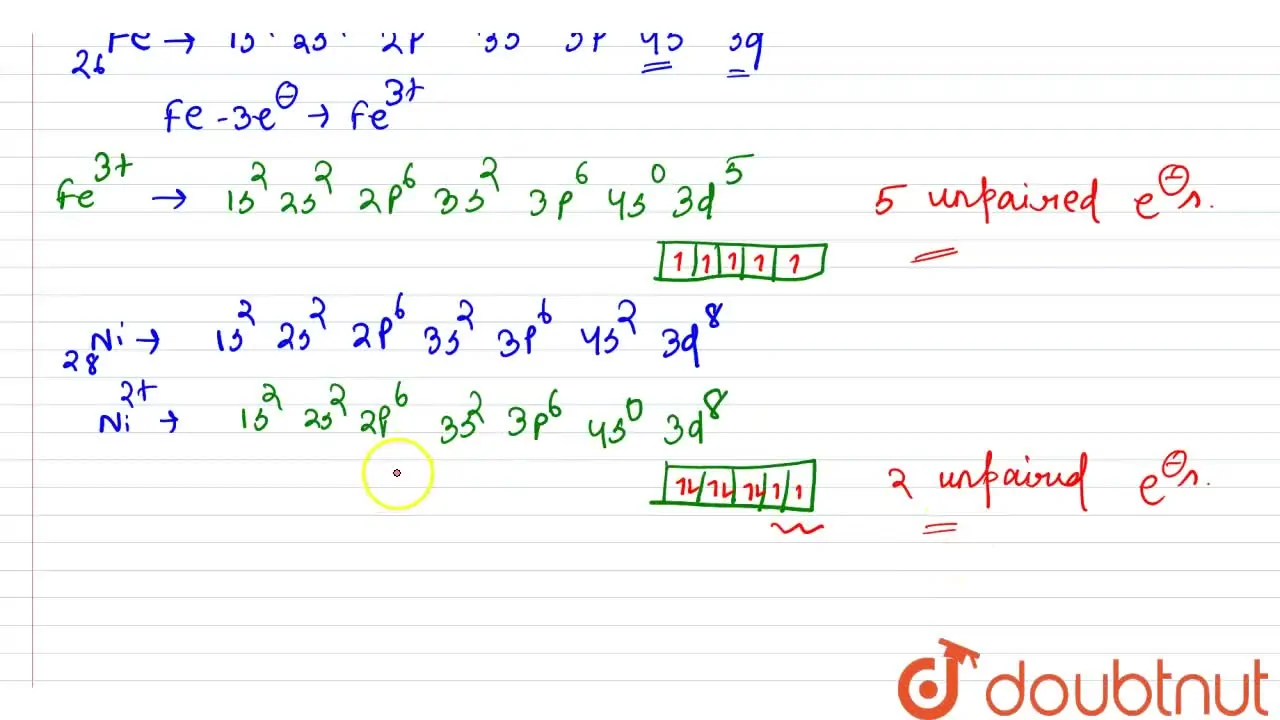 ₂₆Fe → 1s 2s 2p 3s 3p 4s 3d
Fe - 3e⊖ → Fe³⁺
Fe³⁺ → 1s² 2s² 2p⁶ 3s² 3p⁶ 4s⁰ 3d⁵ 5 unpaired e⊖s.
1 1 1 1 1
₂₈Ni → 1s² 2s² 2p⁶ 3s² 3p⁶ 4s² 3d⁸
Ni²⁺ → 1s² 2s² 2p⁶ 3s² 3p⁶ 4s⁰ 3d⁸
1L 1L 1L 1 1 2 unpaired e⊖s.
doubtnut